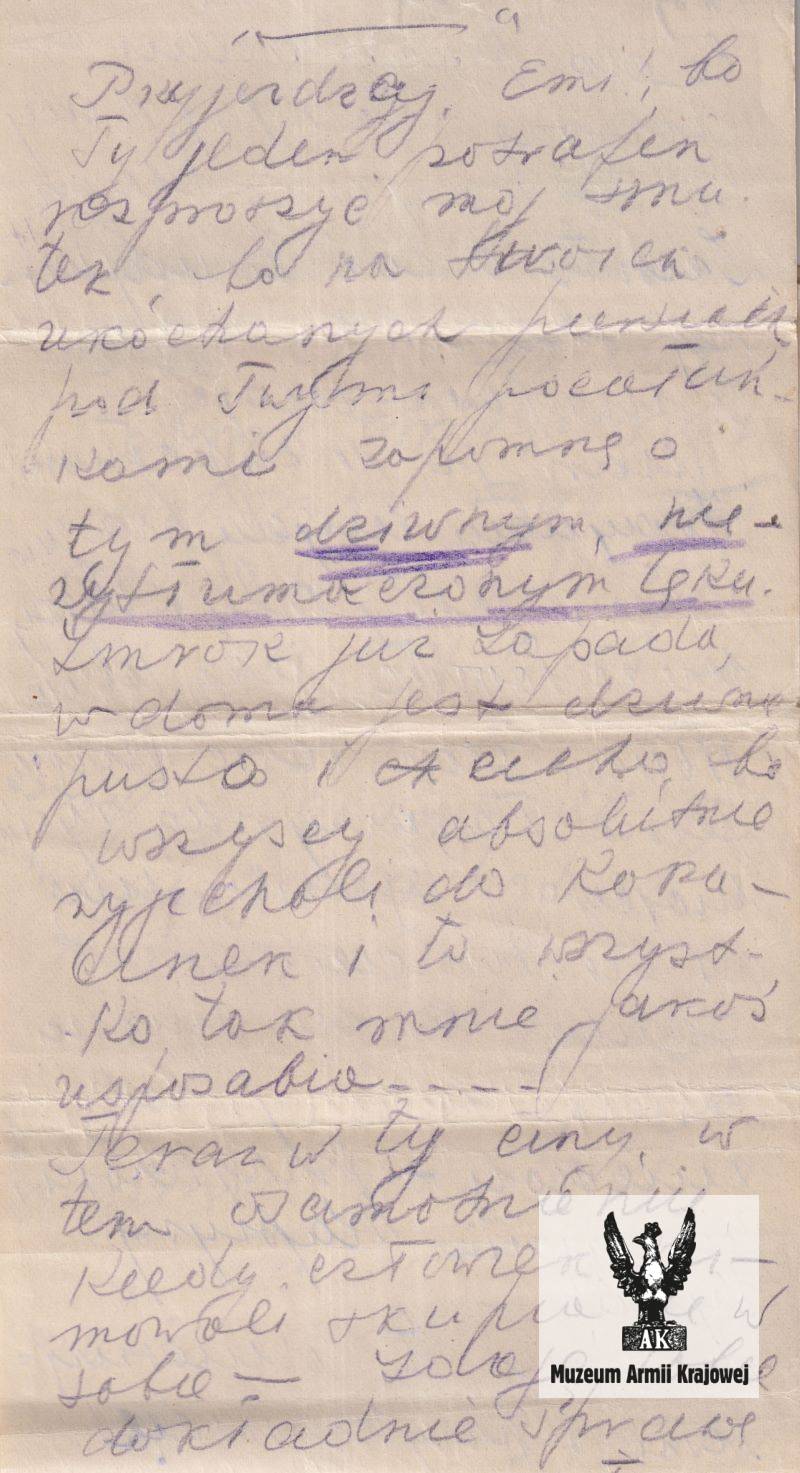 Przyjeżdżaj, Emi!, bo
Ty jeden potrafisz
rozproszyć mój smu
tek, bo na twoich
ukóchanych piersiach
pod Twymi pocałun-
kami zapomnę o
tym dziwnym, nie-
wytłumaczonym lęku.
Zmrok już zapada,
w domu jest dziwnie
pusto i cicho, bo
wszyscy absolutnie
wyjechali do Kopa-
cinek i to wszyst-
ko tak mnie jakoś
usposabia - - - -
Teraz w tej ciszy, w
tem osamotnieniu
kiedy człowiek
mowoli skupia się w
sobie — zdaję sobie
dokładnie sprawę
AK
Muzeum Armii Krajowej